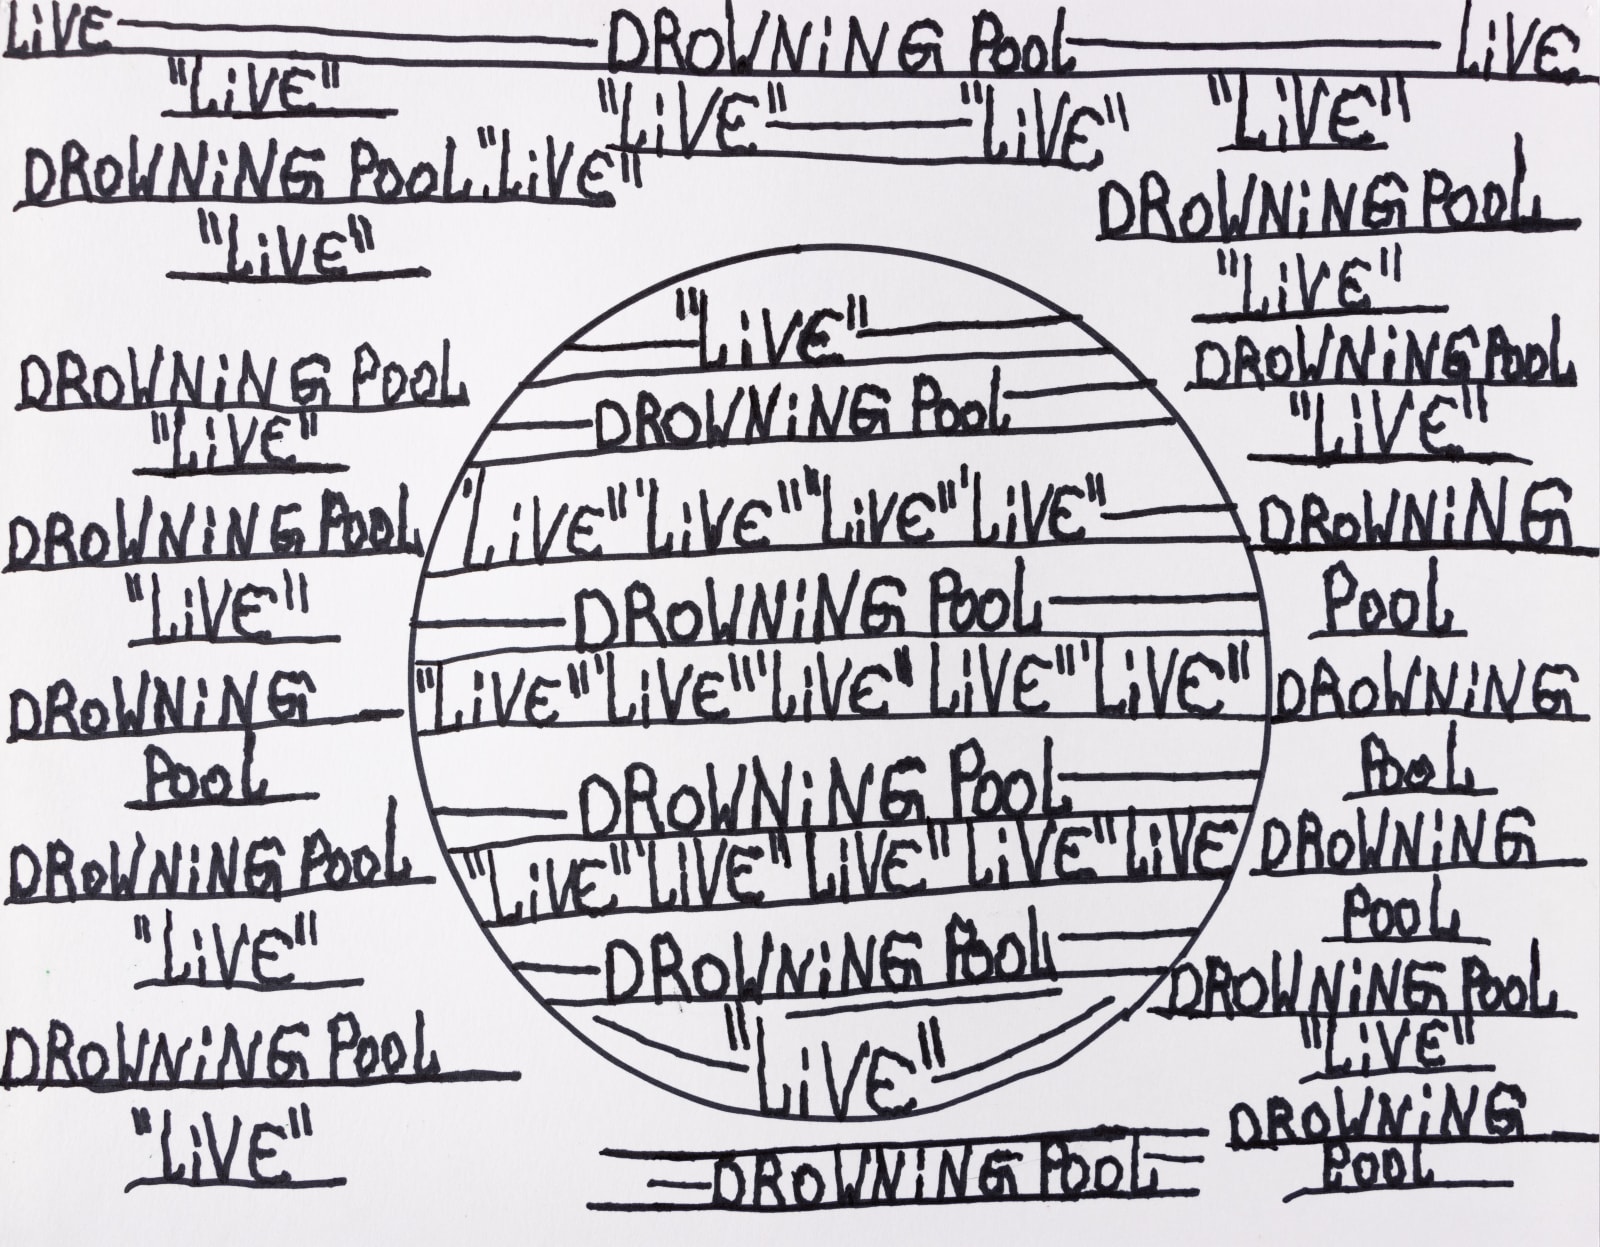 LiVE DROWNiNG POOL LiVE
"LiVE"
"LiVE" "LiVE"
"LiVE"
DROWNiNG POOL "LiVE"
"LiVE"
DROWNiNG POOL
"LiVE"
DROWNiNG POOL
"LiVE"
DROWNiNG
POOL
DROWNiNG POOL
"LiVE"
DROWNiNG POOL
"LiVE"
"LiVE"
DROWNiNG POOL
'LiVE" 'LiVE" "LiVE" 'LiVE"
DROWNiNG POOL
"LiVE" 'LiVE" "LiVE" LiVE" 'LiVE"
DROWNiNG POOL
"LiVE" 'LiVE" 'LiVE" LiVE" LiVE
DROWNiNG POOL
"LiVE"
DROWNiNG POOL
DROWNiNG POOL
"LiVE"
DROWNiNG POOL
"LiVE"
DROWNiNG
POOL
DROWNiNG
POOL
DROWNiNG
POOL
DROWNiNG POOL
"LiVE"
DROWNiNG
POOL